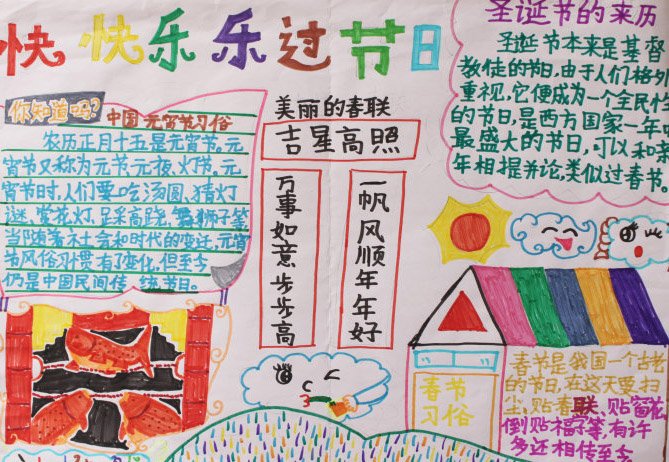 快快乐乐过节日
你知道吗?
中国元宵节习俗
农历正月十五是元宵节。元
宵节又称为元节元夜、灯节。元
宵节时,人们要吃汤圆、猜灯
谜、赏花灯、足采高跷、舞狮子等
当随着社会和时代的变迁,元宵
节风俗习惯有了变化,但至今
仍是中国民间传统节日。
美丽的春联
吉星高照
万事如意步步高
一帆风顺年年好
圣诞节的来历
圣诞节本来是基督
教徒的节日,由于人们格外
重视,它便成为一个全民
的节日,是西方国家一年
最盛大的节日,可以和
年相提并论,类似过春节。
春节
习俗
春节是我国一个古
的节日,在这天要扫
尘、贴春联、贴窗花
倒贴福子等,有许
多还相传至今